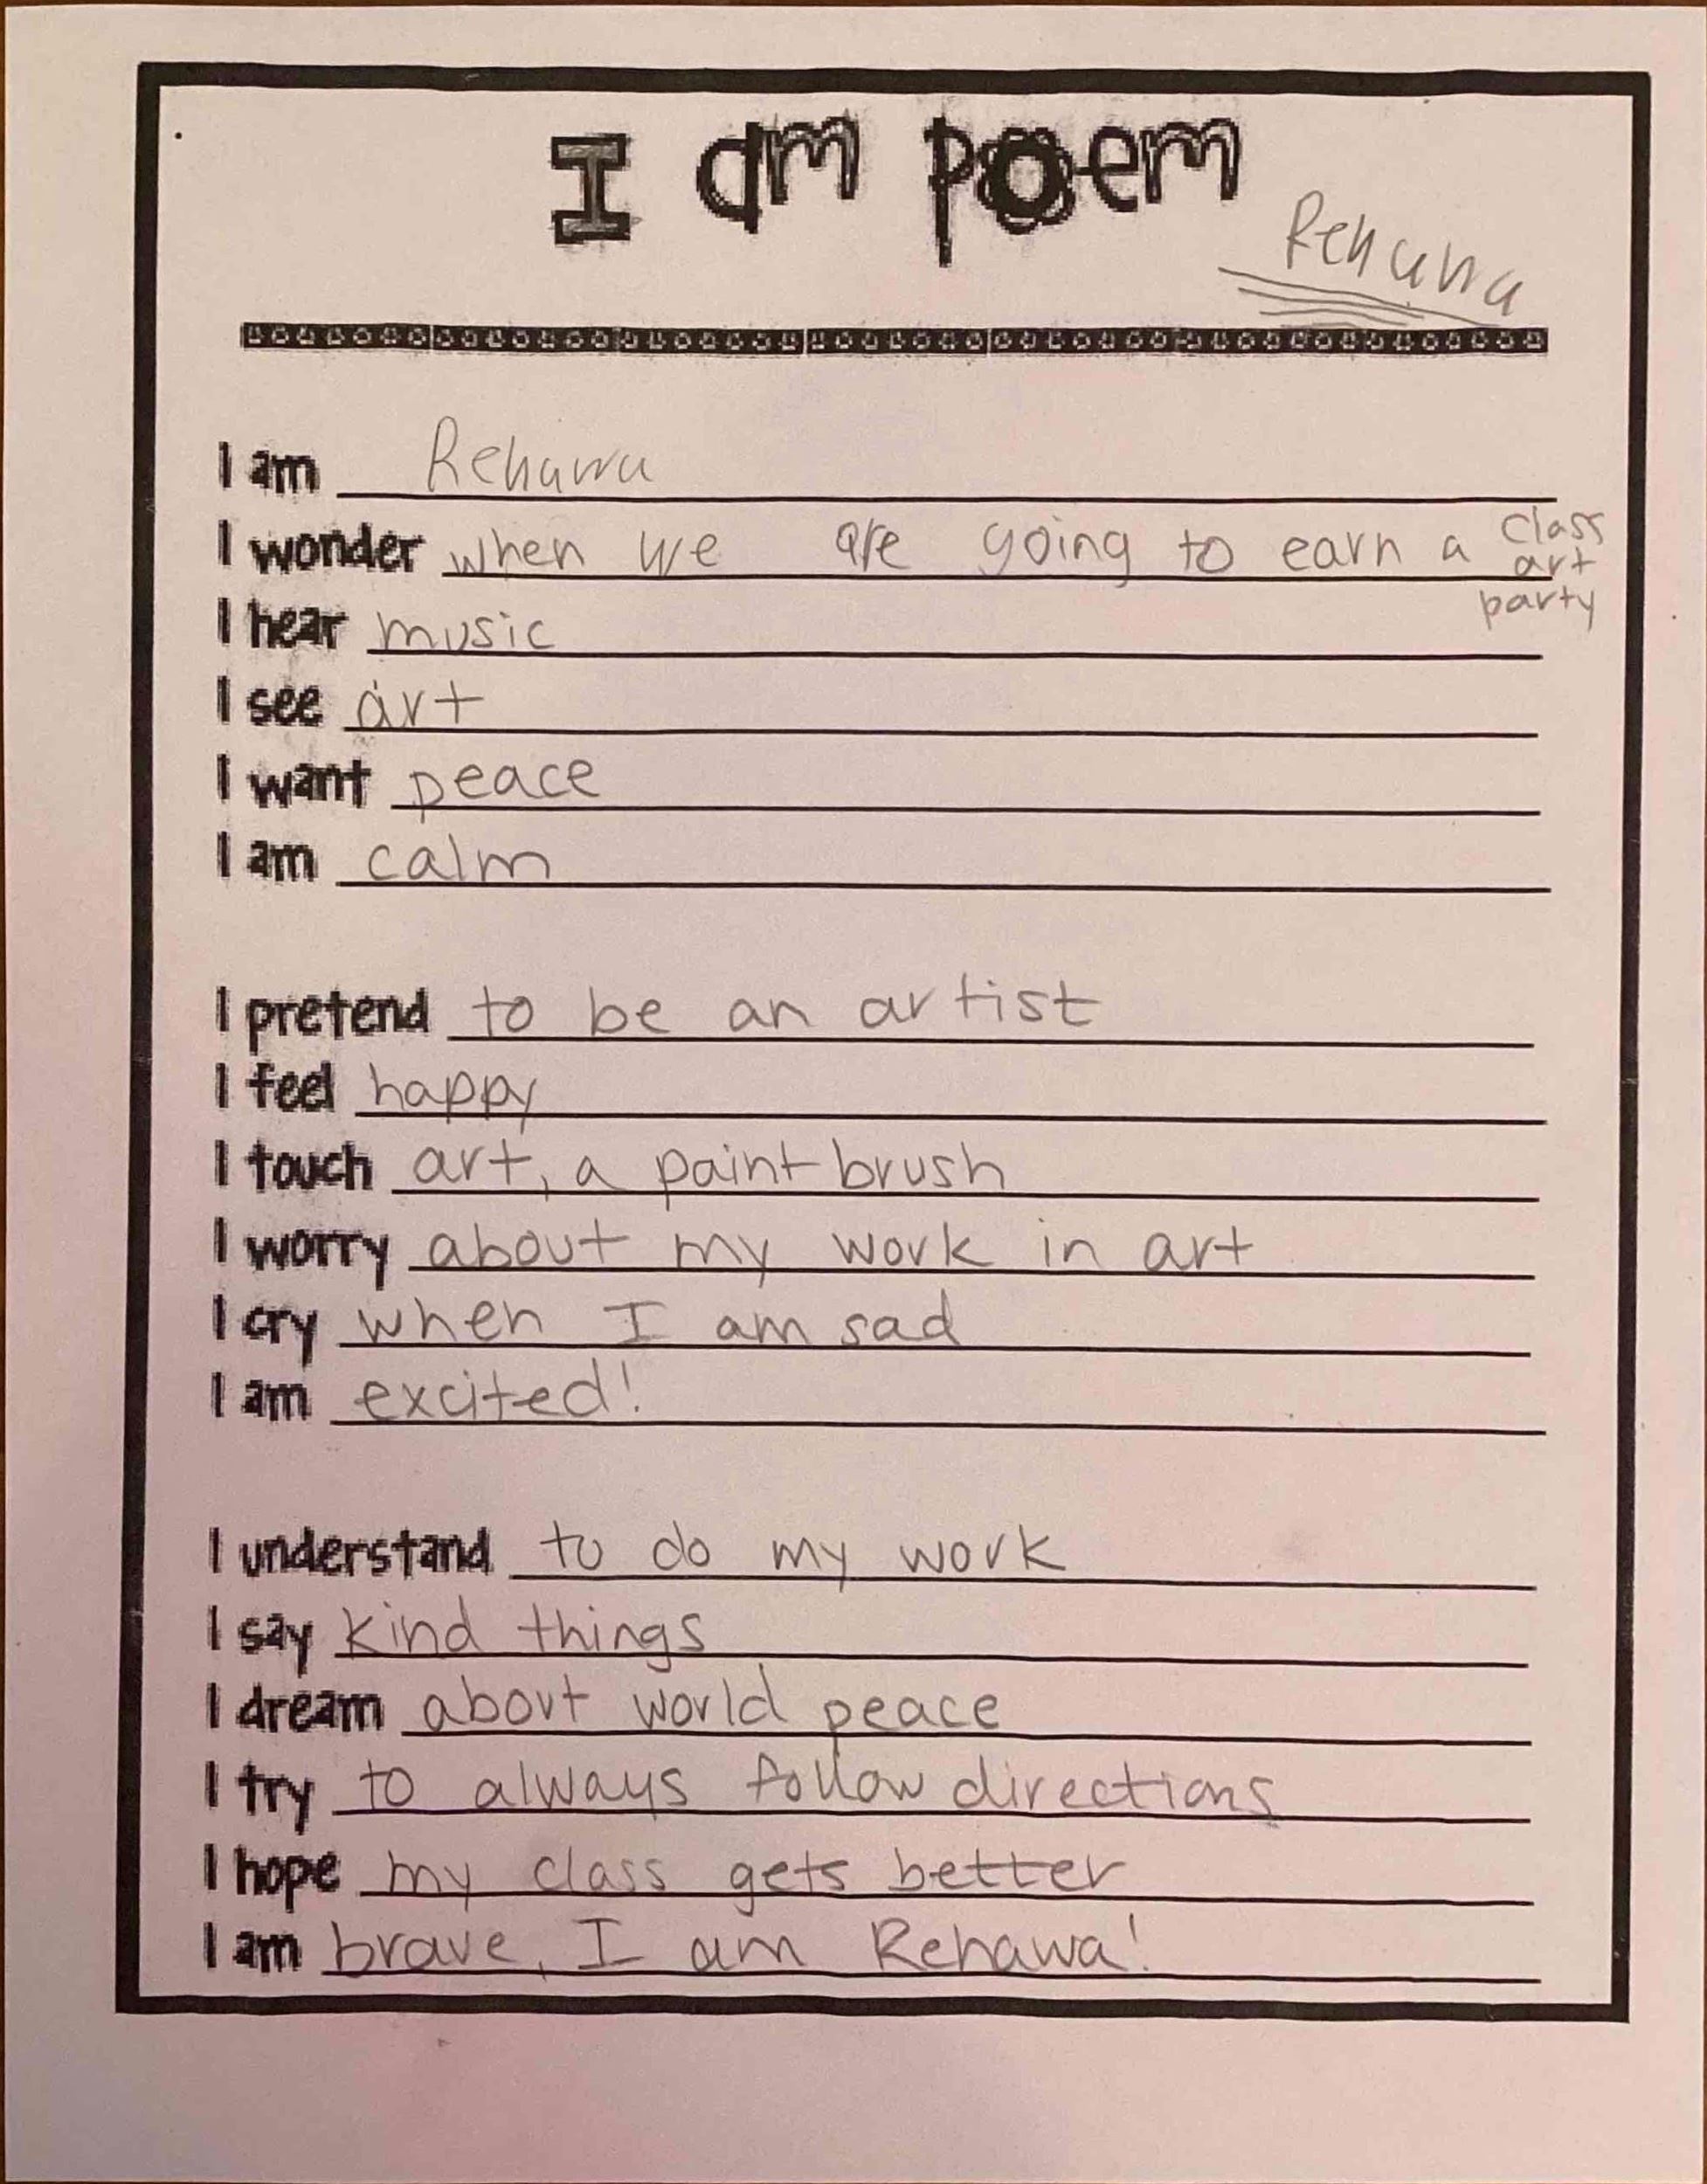 I am poem
Rehawa
I am Rehawa
I wonder when we are going to earn a class
art
party
I hear music
I see art
I want peace
I am calm
I pretend to be an artist
I feel happy
I touch art, a paint brush
I worry about my work in art
I cry when I am sad
I am excited!
I understand to do my work
I say kind things
I dream about world peace
I try to always follow directions
I hope my class gets better
I am brave, I am Rehawa!